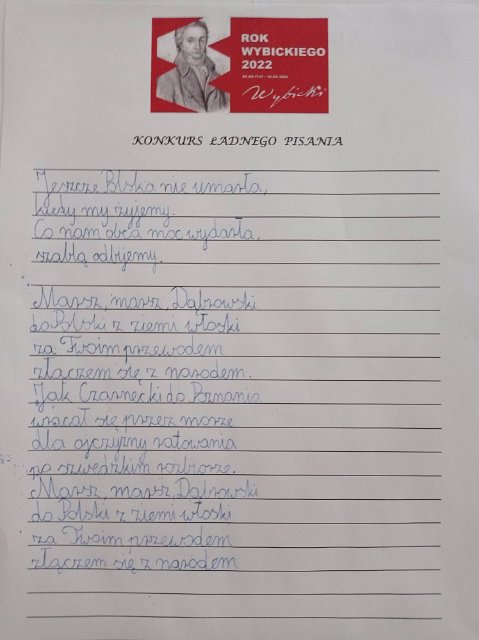 ROK
WYBICKIEGO
2022
Wybicki
KONKURS ŁADNEGO PISANIA
Jeszcze Polska nie umarła,
kiedy my żyjemy.
Co nam obca moc wydarła,
szablą odbijemy.
Marsz, marsz, Dąbrowski
do Polski z ziemi włoski
za Twoim przewodem
złączem się z narodem.
Jak Czarnecki do Poznania
wracał się przez morze
dla ojczyzny ratowania
po szwedzkim rozbiorze.
Marsz, marsz Dąbrowski
do Polski z ziemi włoski
za Twoim przewodem
złączem się z narodem